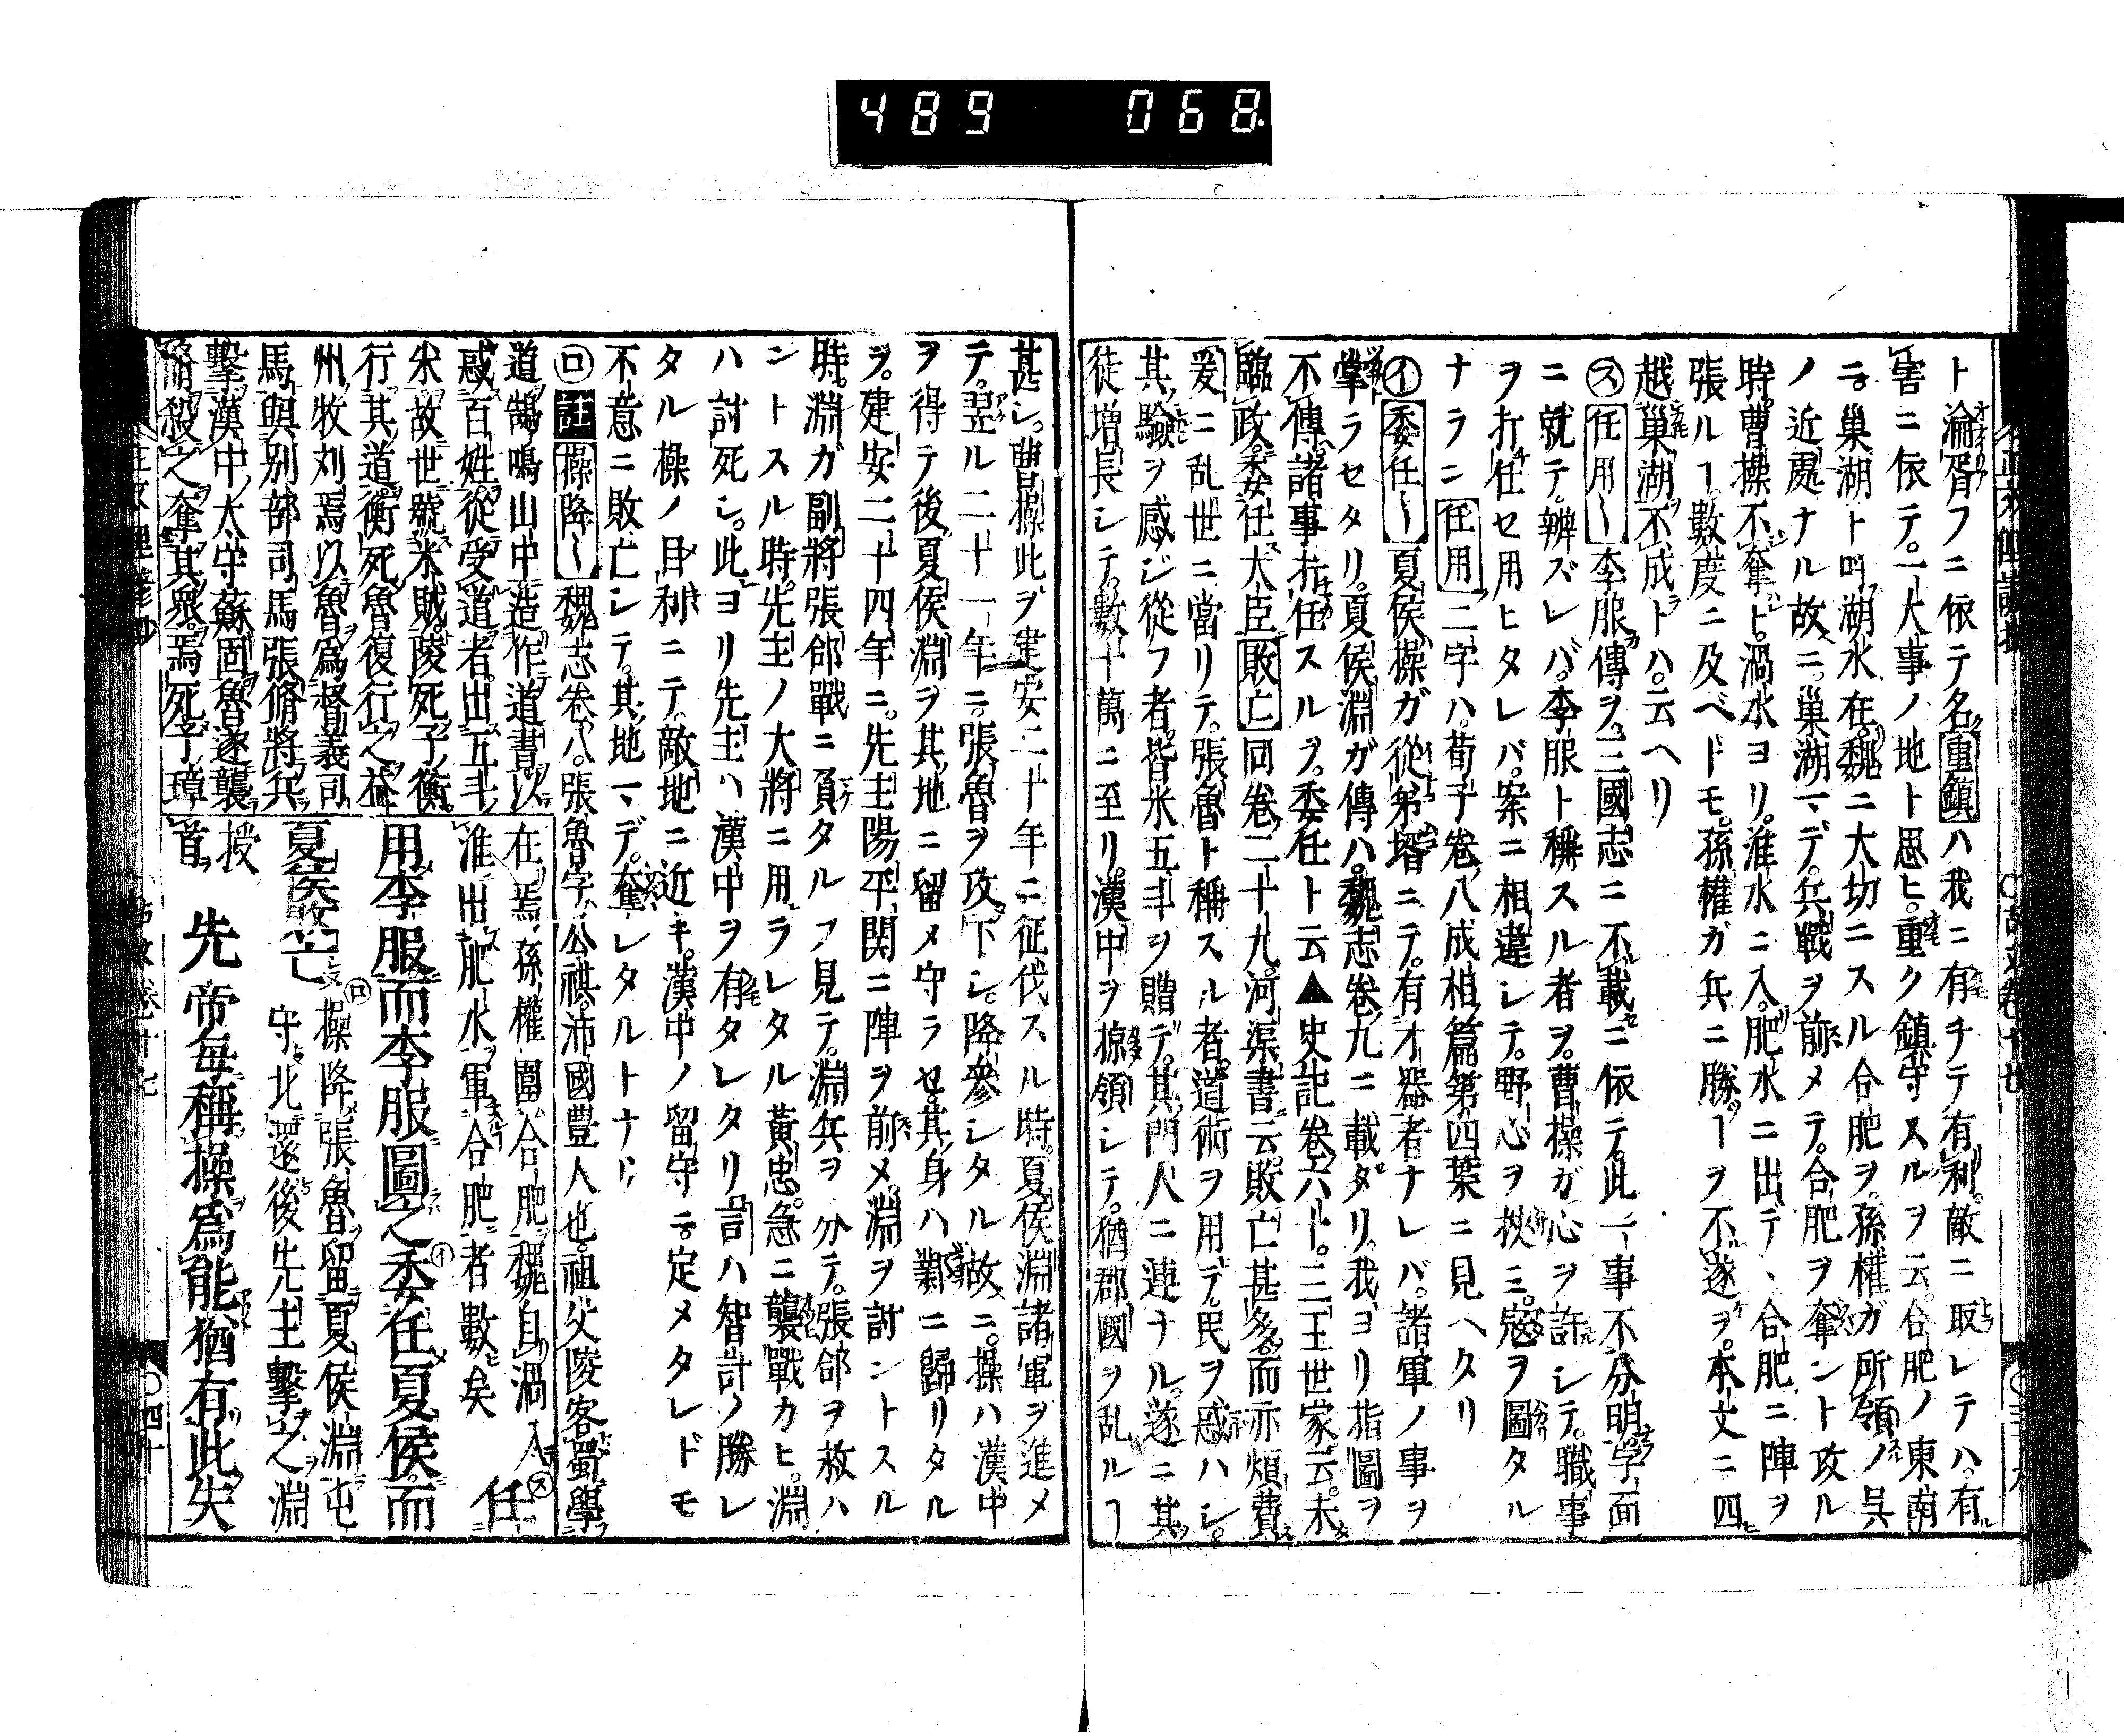 489 068
ト淪胥フニ依テ名重鎭ハ我ニ有チテ有利敵ニ取レテハ有
害ニ依テ一大事ノ地ト思ヒ重ク鎮守スルヲ云合肥ノ東南
ニ巢湖ト叫湖水在魏ニ大切ニスル合肥ヲ孫權ガ所領ノ呉
ノ近處ナル故ニ巢湖マデ兵戰ヲ前メテ合肥ヲ奪ント攻ル
時曹操不奪ト渦水ヨリ淮水ニ入肥水ニ出デ合肥ニ陣ヲ
張ルヿ數度ニ及ベドモ孫權ガ兵ニ勝ヿヲ不遂ヲ本文ニ四
越巢湖不成トハ云ヘリ
㋜任用〳〵李服傳ヲ三國志ニ不載ニ依テ此一事不分明字面
ニ就テ辨ズレバ李服ト稱スル者ヲ曹操ガ心ヲ許シテ職事
ヲ打任セ用ヒタレバ案ニ相違シテ野心ヲ挾ミ寇ヲ圖タル
ナラニ任用二字ハ荀子卷八成相篇第四葉ニ見ヘタリ
㋑委任〳〵夏侯操ガ從弟壻ニテ有才器者ナレバ諸軍ノ事ヲ
掌ラセタリ夏侯淵ガ傳ハ魏志卷九ニ載タリ我ヨリ指圖ヲ
不傳諸事打任スルヲ委任ト云▲史記卷六十三王世家云未
臨政委任大臣敗亡同卷二十九河渠書云敗亡甚多而亦煩費
爰ニ乱世ニ當リテ張魯ト稱スル者道術ヲ用デ民ヲ惑ハシ
其驗ヲ感ジ從フ者皆米五斗ヲ贈テ其門人ニ連ナル遂ニ其
徒增長シテ數十萬ニ至リ漢中ヲ掠領シテ猶郡國ヲ乱ルヿ
甚シ曹操此ヲ建安二十年ニ征伐スル時夏侯淵諸軍ヲ進メ
テ翌ル二十一年ニ張魯ヲ攻下シ降參シタル故ニ操ハ漢中
ヲ得テ後夏侯淵ヲ其地ニ留メ守ラセ其身ハ鄴ニ歸リタル
ヲ建安二十四年ニ先主陽平関ニ陣ヲ前メ淵ヲ討ントスル
時淵ガ副將張郃戰ニ負タルヲ見テ淵兵ヲ分テ張郃ヲ救ハ
ントスル時先主ノ大將ニ用ラレタル黃忠急ニ襲戰カヒ淵
ハ討死シ此ヨリ先主ハ漢中ヲ有タレタリ言ハ智計ノ勝レ
タル操ノ目利ニテ敵地ニ近キ漢中ノ留守ニ定メタレドモ
不意ニ敗亡シテ其地マデ奪レタルトナリ
㋺註操降〳〵魏志卷八張魯字公祺沛國豐人也祖父陵客蜀學
道鵠鳴山中造作道書以
惑百姓從受道者出五斗
米故世號米賊陵死子衡
行其道衡死魯復行之益
州牧刘焉以魯爲督義司
馬與別部司馬張脩將兵
擊漢中太守蘇固魯遂襲
脩殺之奪其衆焉死子璋
在焉孫權圍合肥魏自渦入 任
淮出肥水軍合肥者數矣
用李服而李服圖之委任夏侯而
夏侯敗亡 操降張魯留夏侯淵屯
守北還後先主擊之淵
授
首 先帝每稱操爲能猶有此失